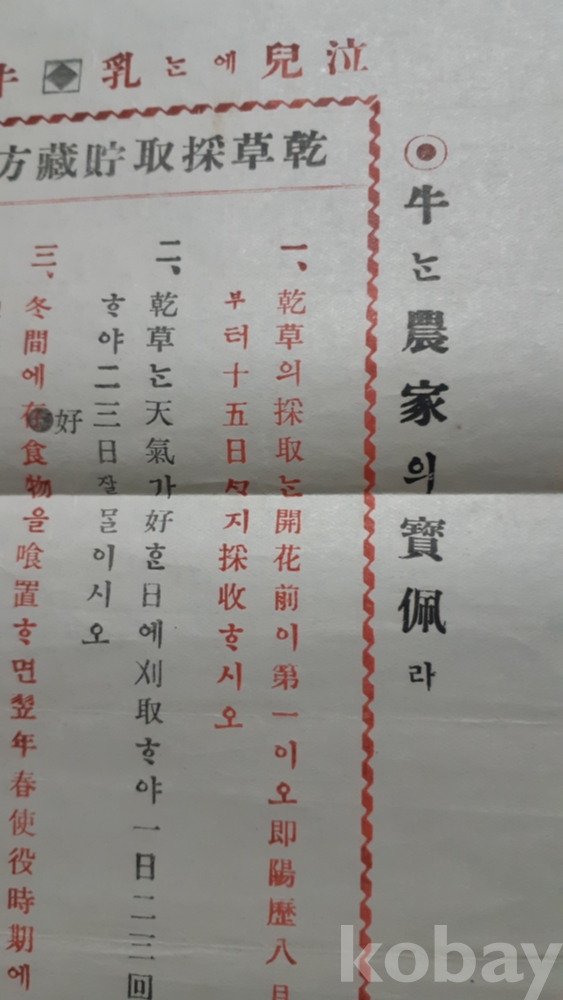 泣兒에ᄂᆞᆫ乳
牛ᄂᆞᆫ農家의寶佩라
乾草採取貯藏方
一、乾草의採取ᄂᆞᆫ開花前이第一이오即陽歷八月
부터十五日ᄭᆞ지採收ᄒᆞ시오
二、乾草ᄂᆞᆫ天氣가好ᄒᆞᆫ日에刈取ᄒᆞ야一日二三回
ᄒᆞ야二三日잘ᄆᆞᆯ이시오
好
三、冬間에食物을喰置ᄒᆞ면翌年春使役時期에
kobay